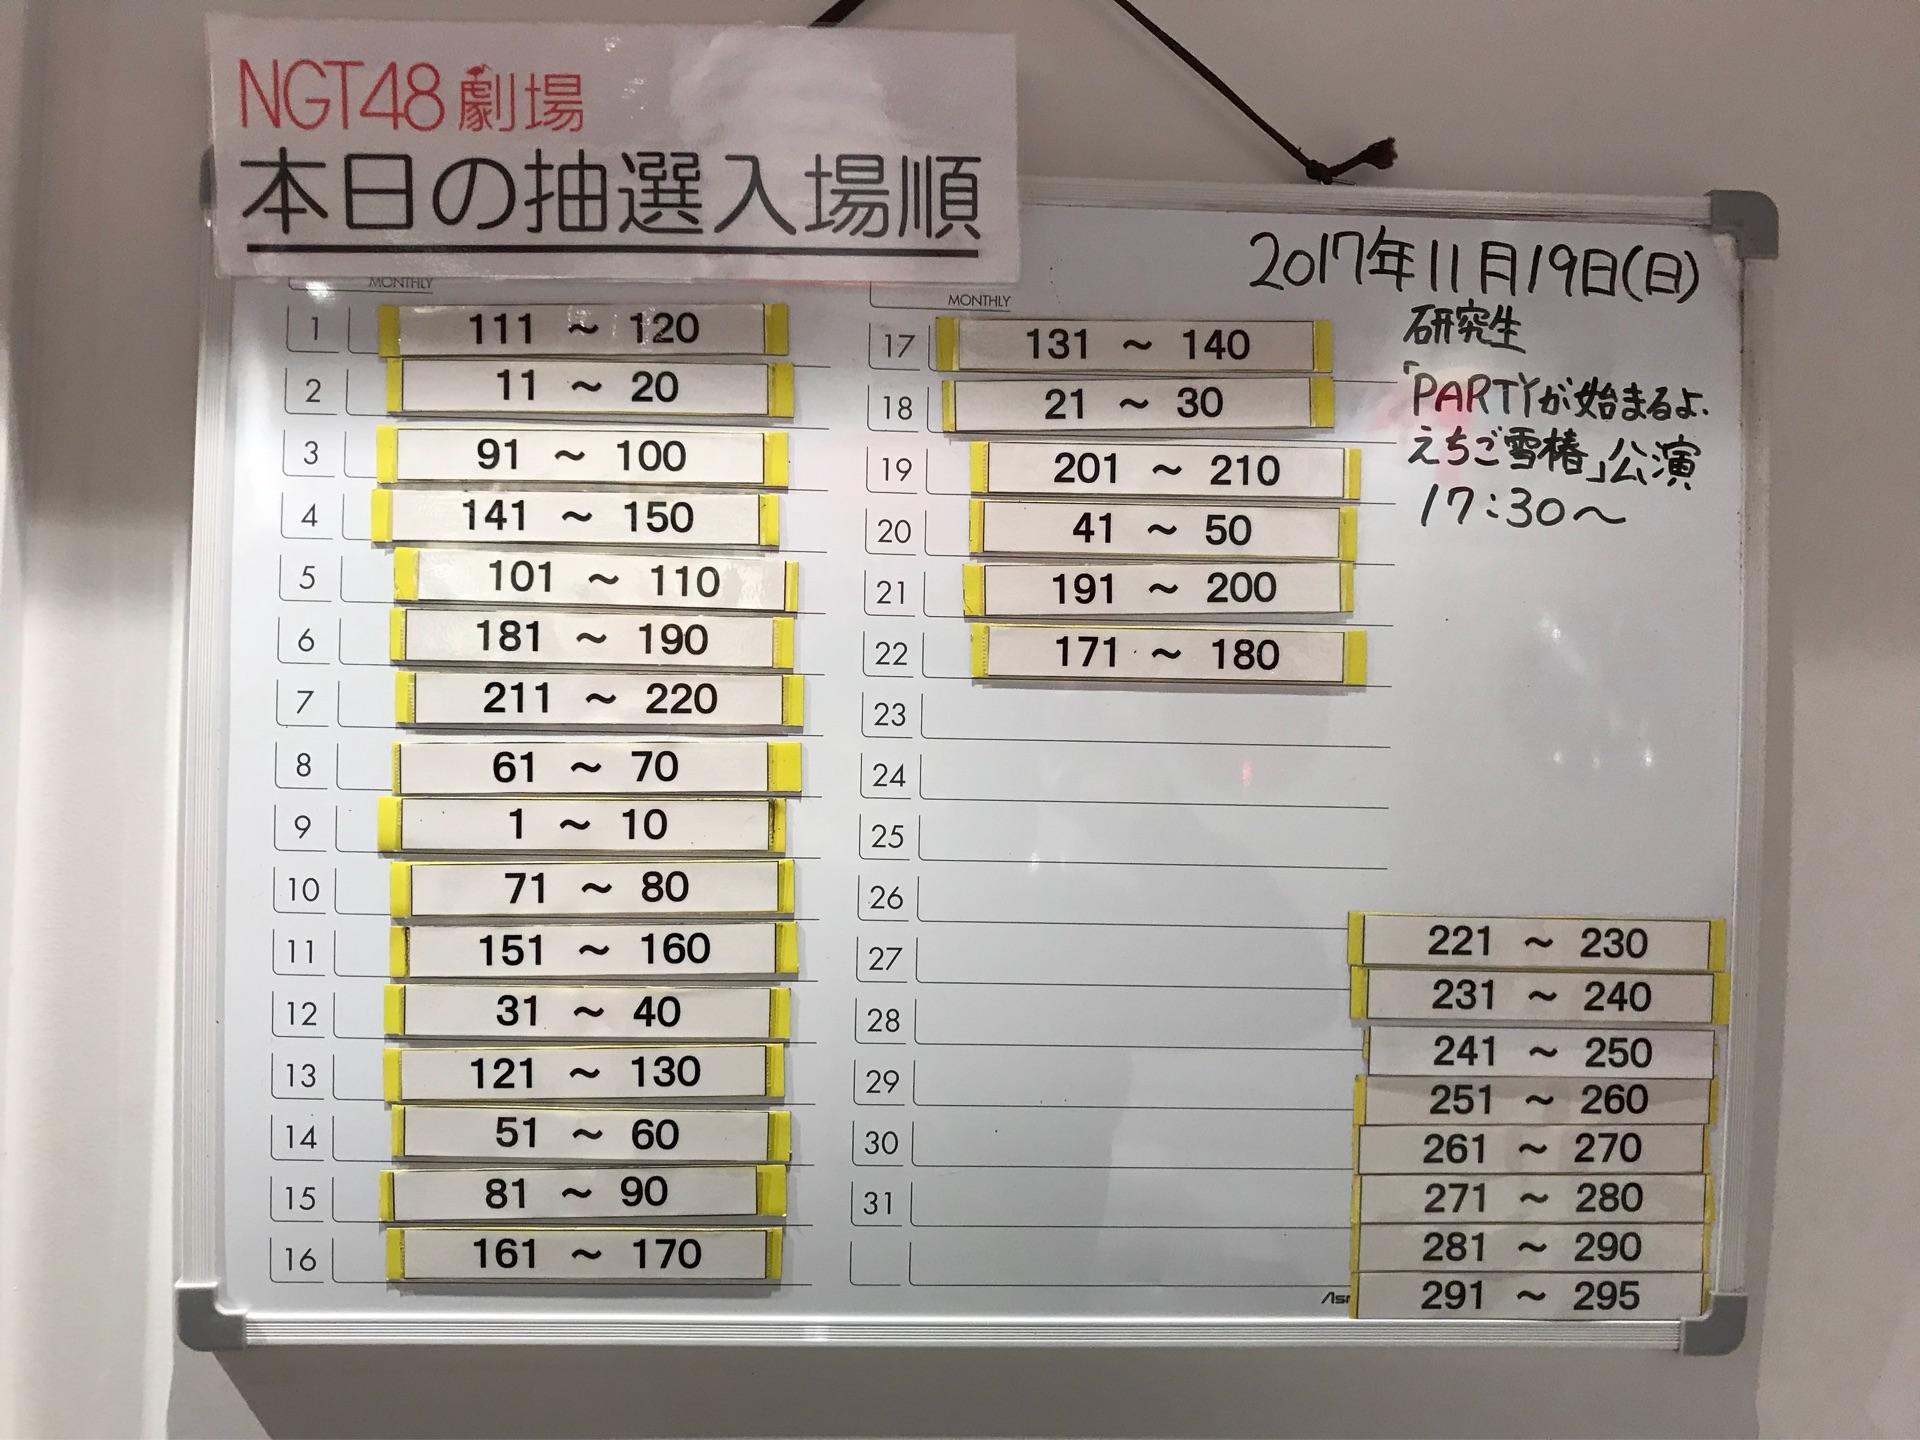 NGT48劇場
本日の抽選入場順
2017年11月19日(日)
研究生
「PARTYが始まるよ、
えちご雪椿」公演
17:30～
MONTHLY
1 111 ～ 120
2 11 ～ 20
3 91 ～ 100
4 141 ～ 150
5 101 ～ 110
6 181 ～ 190
7 211 ～ 220
8 61 ～ 70
9 1 ～ 10
10 71 ～ 80
11 151 ～ 160
12 31 ～ 40
13 121 ～ 130
14 51 ～ 60
15 81 ～ 90
16 161 ～ 170
MONTHLY
17 131 ～ 140
18 21 ～ 30
19 201 ～ 210
20 41 ～ 50
21 191 ～ 200
22 171 ～ 180
23
24
25
26
27
28
29
30
31
221 ～ 230
231 ～ 240
241 ～ 250
251 ～ 260
261 ～ 270
271 ～ 280
281 ～ 290
291 ～ 295